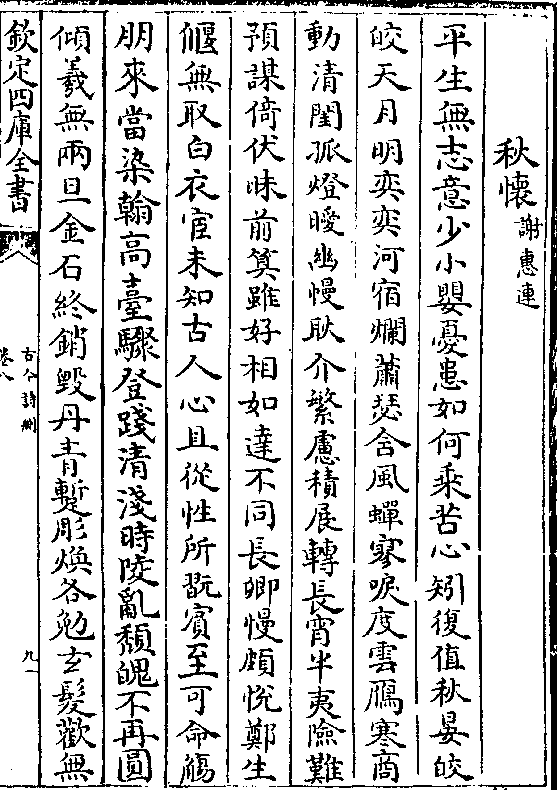 秋懷謝惠連
平生無志意少小嬰憂患如何乘苦心矧復值秋晏皎
皎天月明奕奕河宿爛蕭瑟含風蟬寥唳度雲鴈寒商
動清閨孤燈曖幽幔耿介繁慮積展轉長宵半夷險難
預謀倚伏昧前筭雖好相如達不同長卿慢頗悅鄭生
偃無取白衣宦未知古人心且從性所翫賓至可命觴
朋來當染翰高臺驟登踐清淺時陵亂頽魄不再圓
傾羲無兩旦金石終銷毀丹青蹔彫煥各勉玄髮歡無
欽定四庫全書
古今詩刪
卷八
九